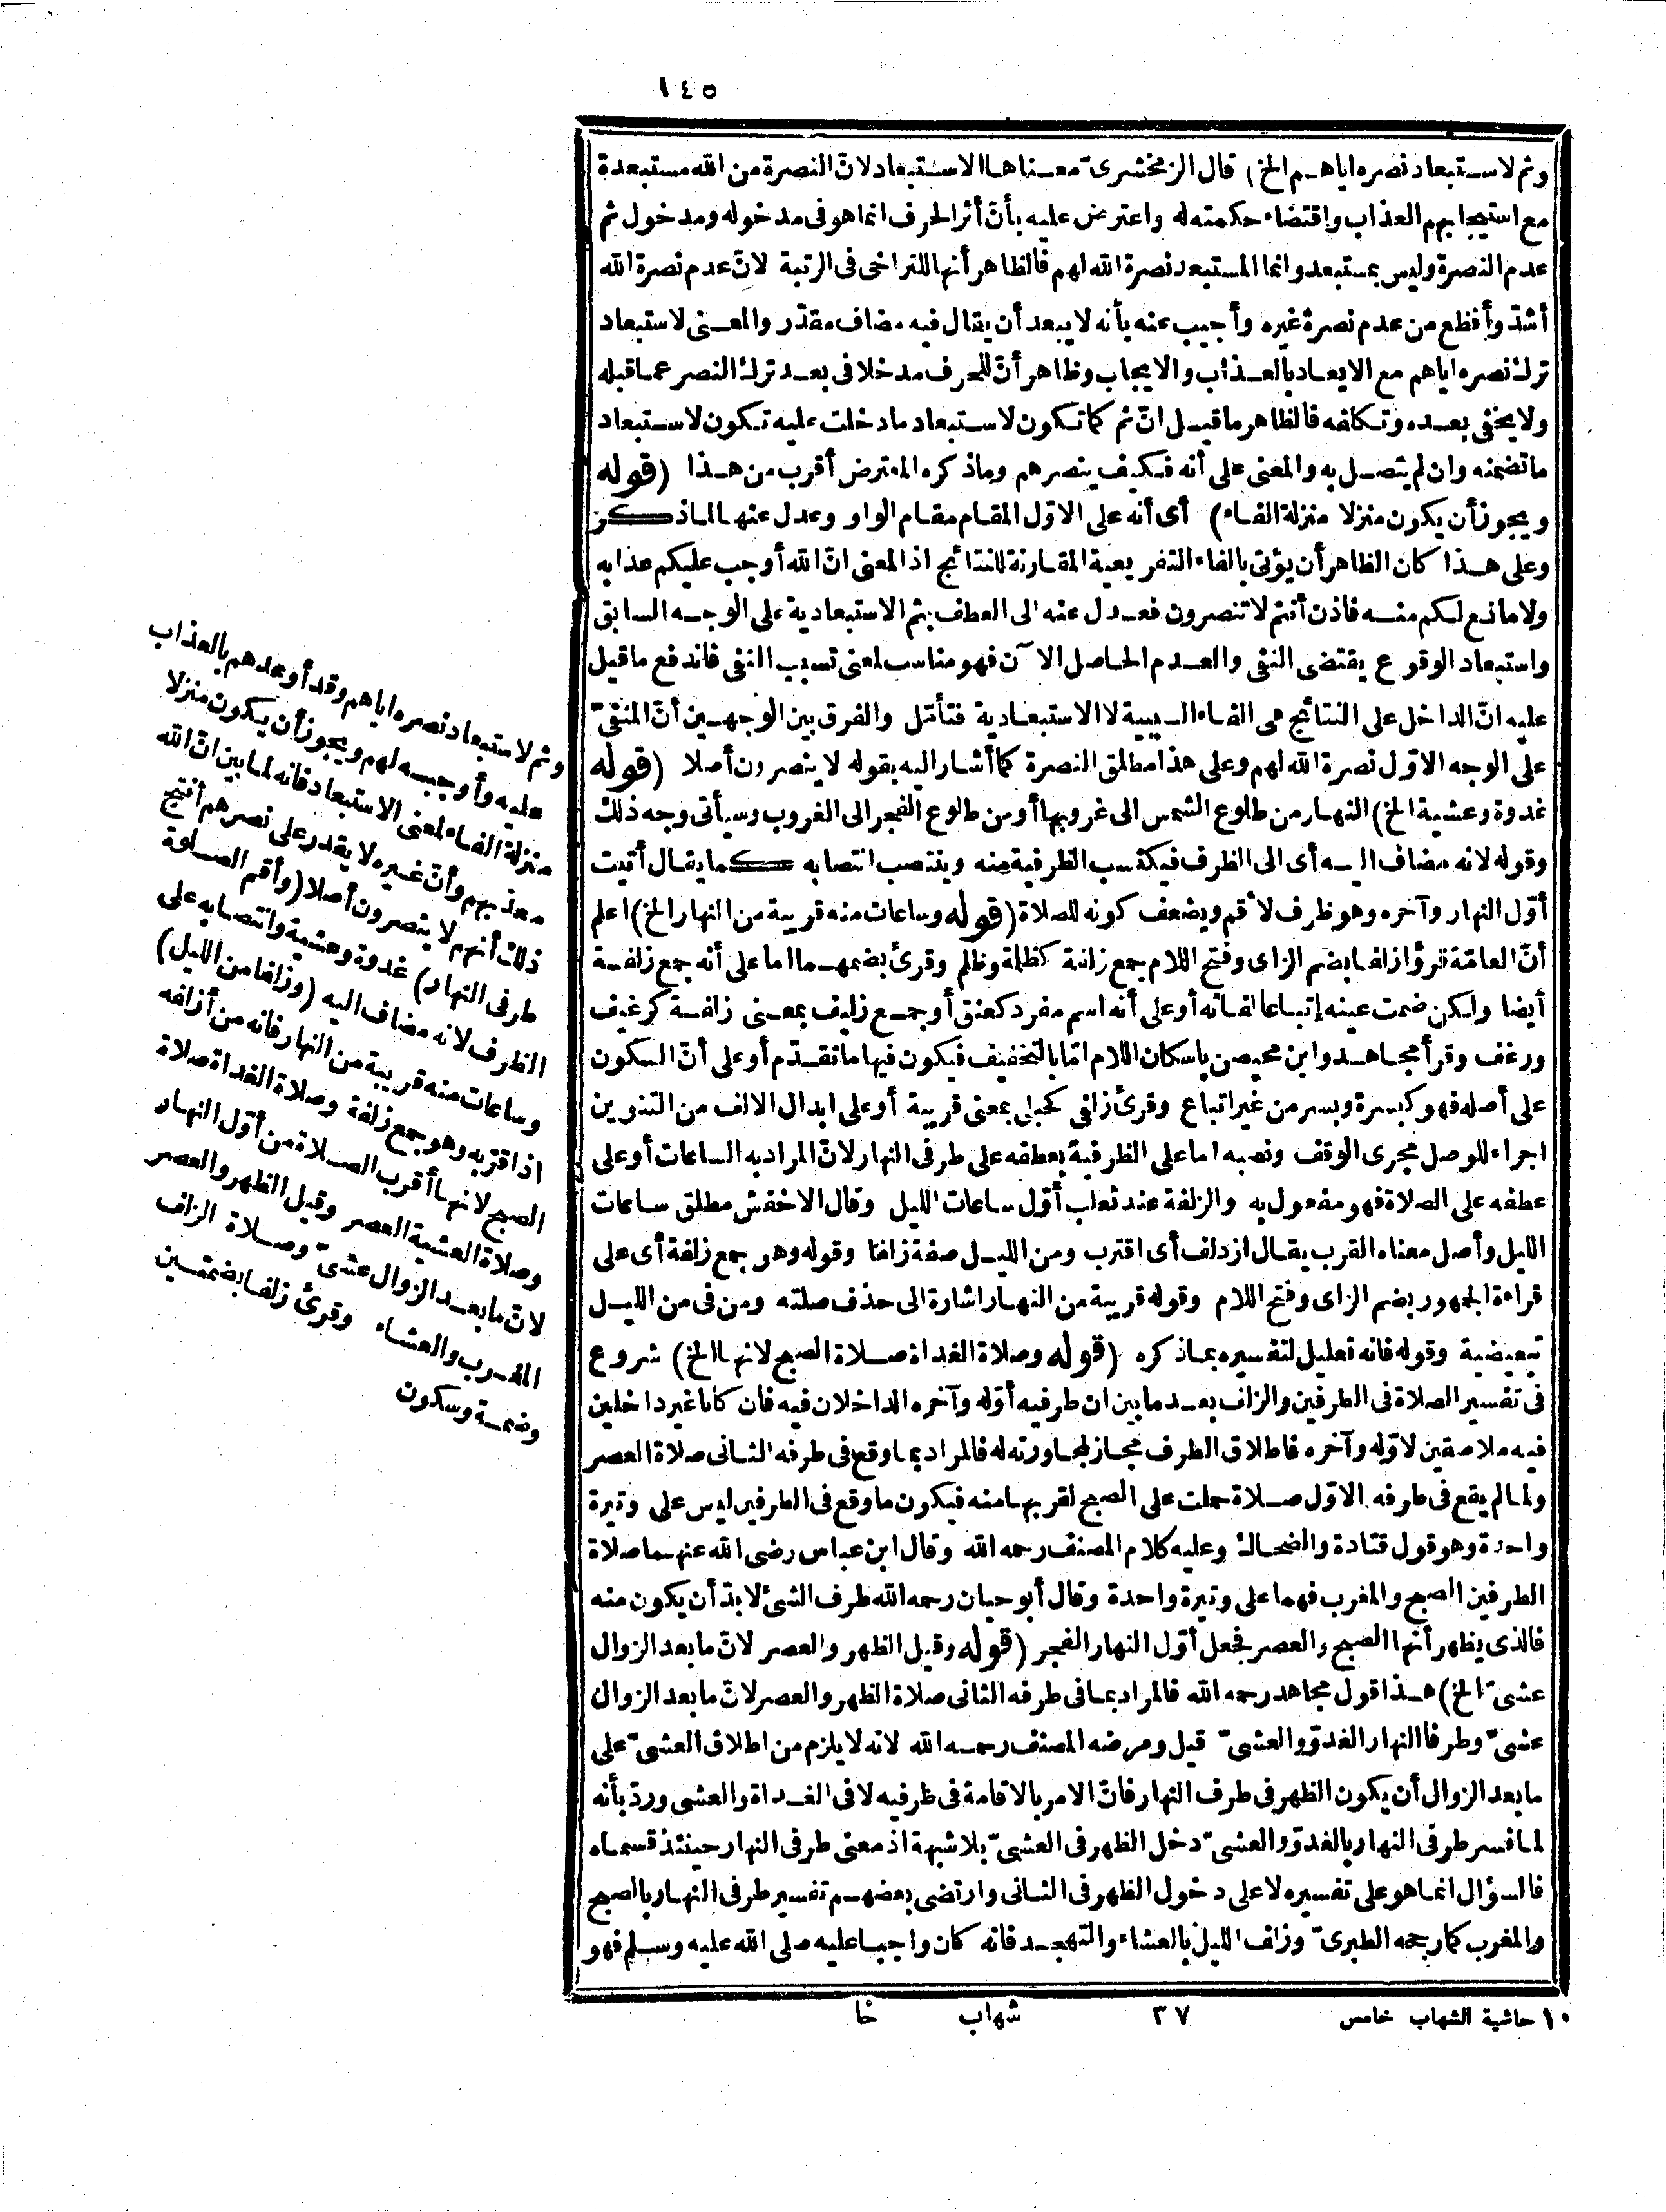 ١٤٥
وثم لاستبعاد نصره اياهم الخ) قال الزمخشرىّ معناها الاستبعاد لانّ النصرة من الله مستبعدة
مع استيجابهم العذاب واقتضاء حكمته له واعترض عليه بأنّ أثر الحرف انما هو فى مدخوله ومدخول ثم
عدم النصرة وليس بمستبعد وانما المستبعد نصرة الله لهم فالظاهر أنها للتراخى فى الرتبة لانّ عدم نصرة الله
أشدّ وأفظع من عدم نصرة غيره وأجيب عنه بأنه لا يبعد أن يقال فيه مضاف مقدّر والمعنى لاستبعاد
ترك نصره اياهم مع الايعاد بالعذاب والايجاب وظاهر أنّ للحرف مدخلا فى بعد ترك النصر عما قبله
ولا يخفى بعده وتكلفه فالظاهر ما قيل انّ ثم كما تكون لاستبعاد ما دخلت عليه تكون لاستبعاد
ما تضمنه وان لم يتصل به والمعنى على أنه فكيف ينصرهم وما ذكره المعترض أقرب من هذا (قوله
ويجوز أن يكون منزلا منزلة الفاء) أى أنه على الاوّل المقام مقام الواو وعدل عنها لما ذكر
وعلى هذا كان الظاهر أن يؤتى بالفاء التفريعية المقارنة للنتائج اذ المعنى انّ الله أوجب عليكم عذابه
ولا مانع لكم منه فاذن أنتم لا تنصرون فعدل عنه الى العطف بثم الاستبعادية على الوجه السابق
واستبعاد الوقوع يقتضى النفى والعدم الحاصل الآن فهو مناسب لمعنى تسبب النفى فاندفع ما قيل
عليه انّ الداخل على النتائج هى الفاء السببية لا الاستبعادية فتأمّل والفرق بين الوجهين أنّ المنفىّ
على الوجه الاوّل نصرة الله لهم وعلى هذا مطلق النصرة كما أشار اليه بقوله لا ينصرون أصلا (قوله
غدوة وعشية الخ) النهار من طلوع الشمس الى غروبها أو من طلوع الفجر الى الغروب وسيأتى وجه ذلك
وقوله لانه مضاف اليه أى الى الظرف فيكتسب الظرفية منه وينتصب انتصابه كما يقال أتيت
أوّل النهار وآخره وهو ظرف لأقم ويضعف كونه للصلاة (قوله وساعات منه قريبة من النهار الخ) اعلم
أنّ العامّة قرؤا زلفا بضم الزاى وفتح اللام جمع زلفة كظلمة وظلم وقرئ بضمهما اما على أنه جمع زلفة
أيضا ولكن ضمت عينه إتباعا لفائه أو على أنه اسم مفرد كعنق أو جمع زليف بمعنى زلفة كرغيف
ورغف وقرأ مجاهد وابن محيصن باسكان اللام امّا بالتخفيف فيكون فيها ما تقدّم أو على أنّ السكون
على أصله فهو كبسرة وبسر من غير اتباع وقرئ زلفى كحبلى بمعنى قريبة أو على ابدال الالف من التنوين
اجراء للوصل مجرى الوقف ونصبه اما على الظرفية بعطفه على طرفى النهار لانّ المراد به الساعات أو على
عطفه على الصلاة فهو مفعول به والزلفة عند ثعلب أوّل ساعات الليل وقال الاخفش مطلق ساعات
الليل وأصل معناه القرب يقال ازدلف أى اقترب ومن الليل صفة زلفا وقوله وهو جمع زلفة أى على
قراءة الجمهور بضم الزاى وفتح اللام وقوله قريبة من النهار اشارة الى حذف صلته ومن فى من الليل
تبعيضية وقوله فانه تعليل لتفسيره بما ذكره (قوله وصلاة الغداة صلاة الصبح لانها الخ) شروع
فى تفسير الصلاة فى الطرفين والزلف بعد ما بين ان طرفيه أوّله وآخره الداخلان فيه فان كانا غير داخلين
فيه ملاصقين لاوّله وآخره فاطلاق الطرف مجاز لمجاورته له فالمراد بما وقع فى طرفه الثانى صلاة العصر
ولما لم يقع فى طرفه الاوّل صلاة حملت على الصبح لقربها منه فيكون ما وقع فى الطرفين ليس على وتيرة
واحدة وهو قول قتادة والضحاك وعليه كلام المصنف رحمه الله وقال ابن عباس رضى الله عنهما صلاة
الطرفين الصبح والمغرب فهما على وتيرة واحدة وقال أبو حيان رحمه الله طرف الشئ لا بدّ أن يكون منه
فالذى يظهر أنها الصبح والعصر فجعل أوّل النهار الفجر (قوله وقيل الظهر والعصر لانّ ما بعد الزوال
عشىّ الخ) هذا قول مجاهد رحمه الله فالمراد بما فى طرفه الثانى صلاة الظهر والعصر لانّ ما بعد الزوال
عشىّ وطرفا النهار الغدوّ والعشىّ قيل ومرضه المصنف رحمه الله لانه لا يلزم من اطلاق العشىّ على
ما بعد الزوال أن يكون الظهر فى طرف النهار فانّ الامر بالاقامة فى طرفيه لا فى الغداة والعشى وردّ بأنه
لما فسر طرفى النهار بالغدوّ والعشىّ دخل الظهر فى العشىّ بلا شبهة اذ معنى طرفى النهار حينئذ قسماه
فالسؤال انما هو على تفسيره لا على دخول الظهر فى الثانى وارتضى بعضهم تفسير طرفى النهار بالصبح
والمغرب كما رجحه الطبرىّ وزلف الليل بالعشاء والتهجد فانه كان واجبا عليه صلى الله عليه وسلم فهو
وثم لاستبعاد نصره اياهم وقد أوعدهم بالعذاب
عليه وأوجبه لهم ويجوز أن يكون منزلا
منزلة الفاء لمعنى الاستبعاد فانه لما بين انّ الله
معذبهم وأنّ غيره لا يقدر على نصرهم أنتج
ذلك أنهم لا ينصرون أصلا (وأقم الصلوة
طرفى النهار) غدوة وعشية وانتصابه على
الظرف لانه مضاف اليه (وزلفا من الليل)
وساعات منه قريبة من النهار فانه من أزلفه
اذا قربه وهو جمع زلفة وصلاة الغداة صلاة
الصبح لانها أقرب الصلاة من أوّل النهار
وصلاة العشية العصر وقيل الظهر والعصر
لانّ ما بعد الزوال عشىّ وصلاة الزلف
المغرب والعشاء وقرئ زلفا بضمتين
وضمة وسكون
١٠ حاشية الشهاب خامس ٣٧ شهاب خا